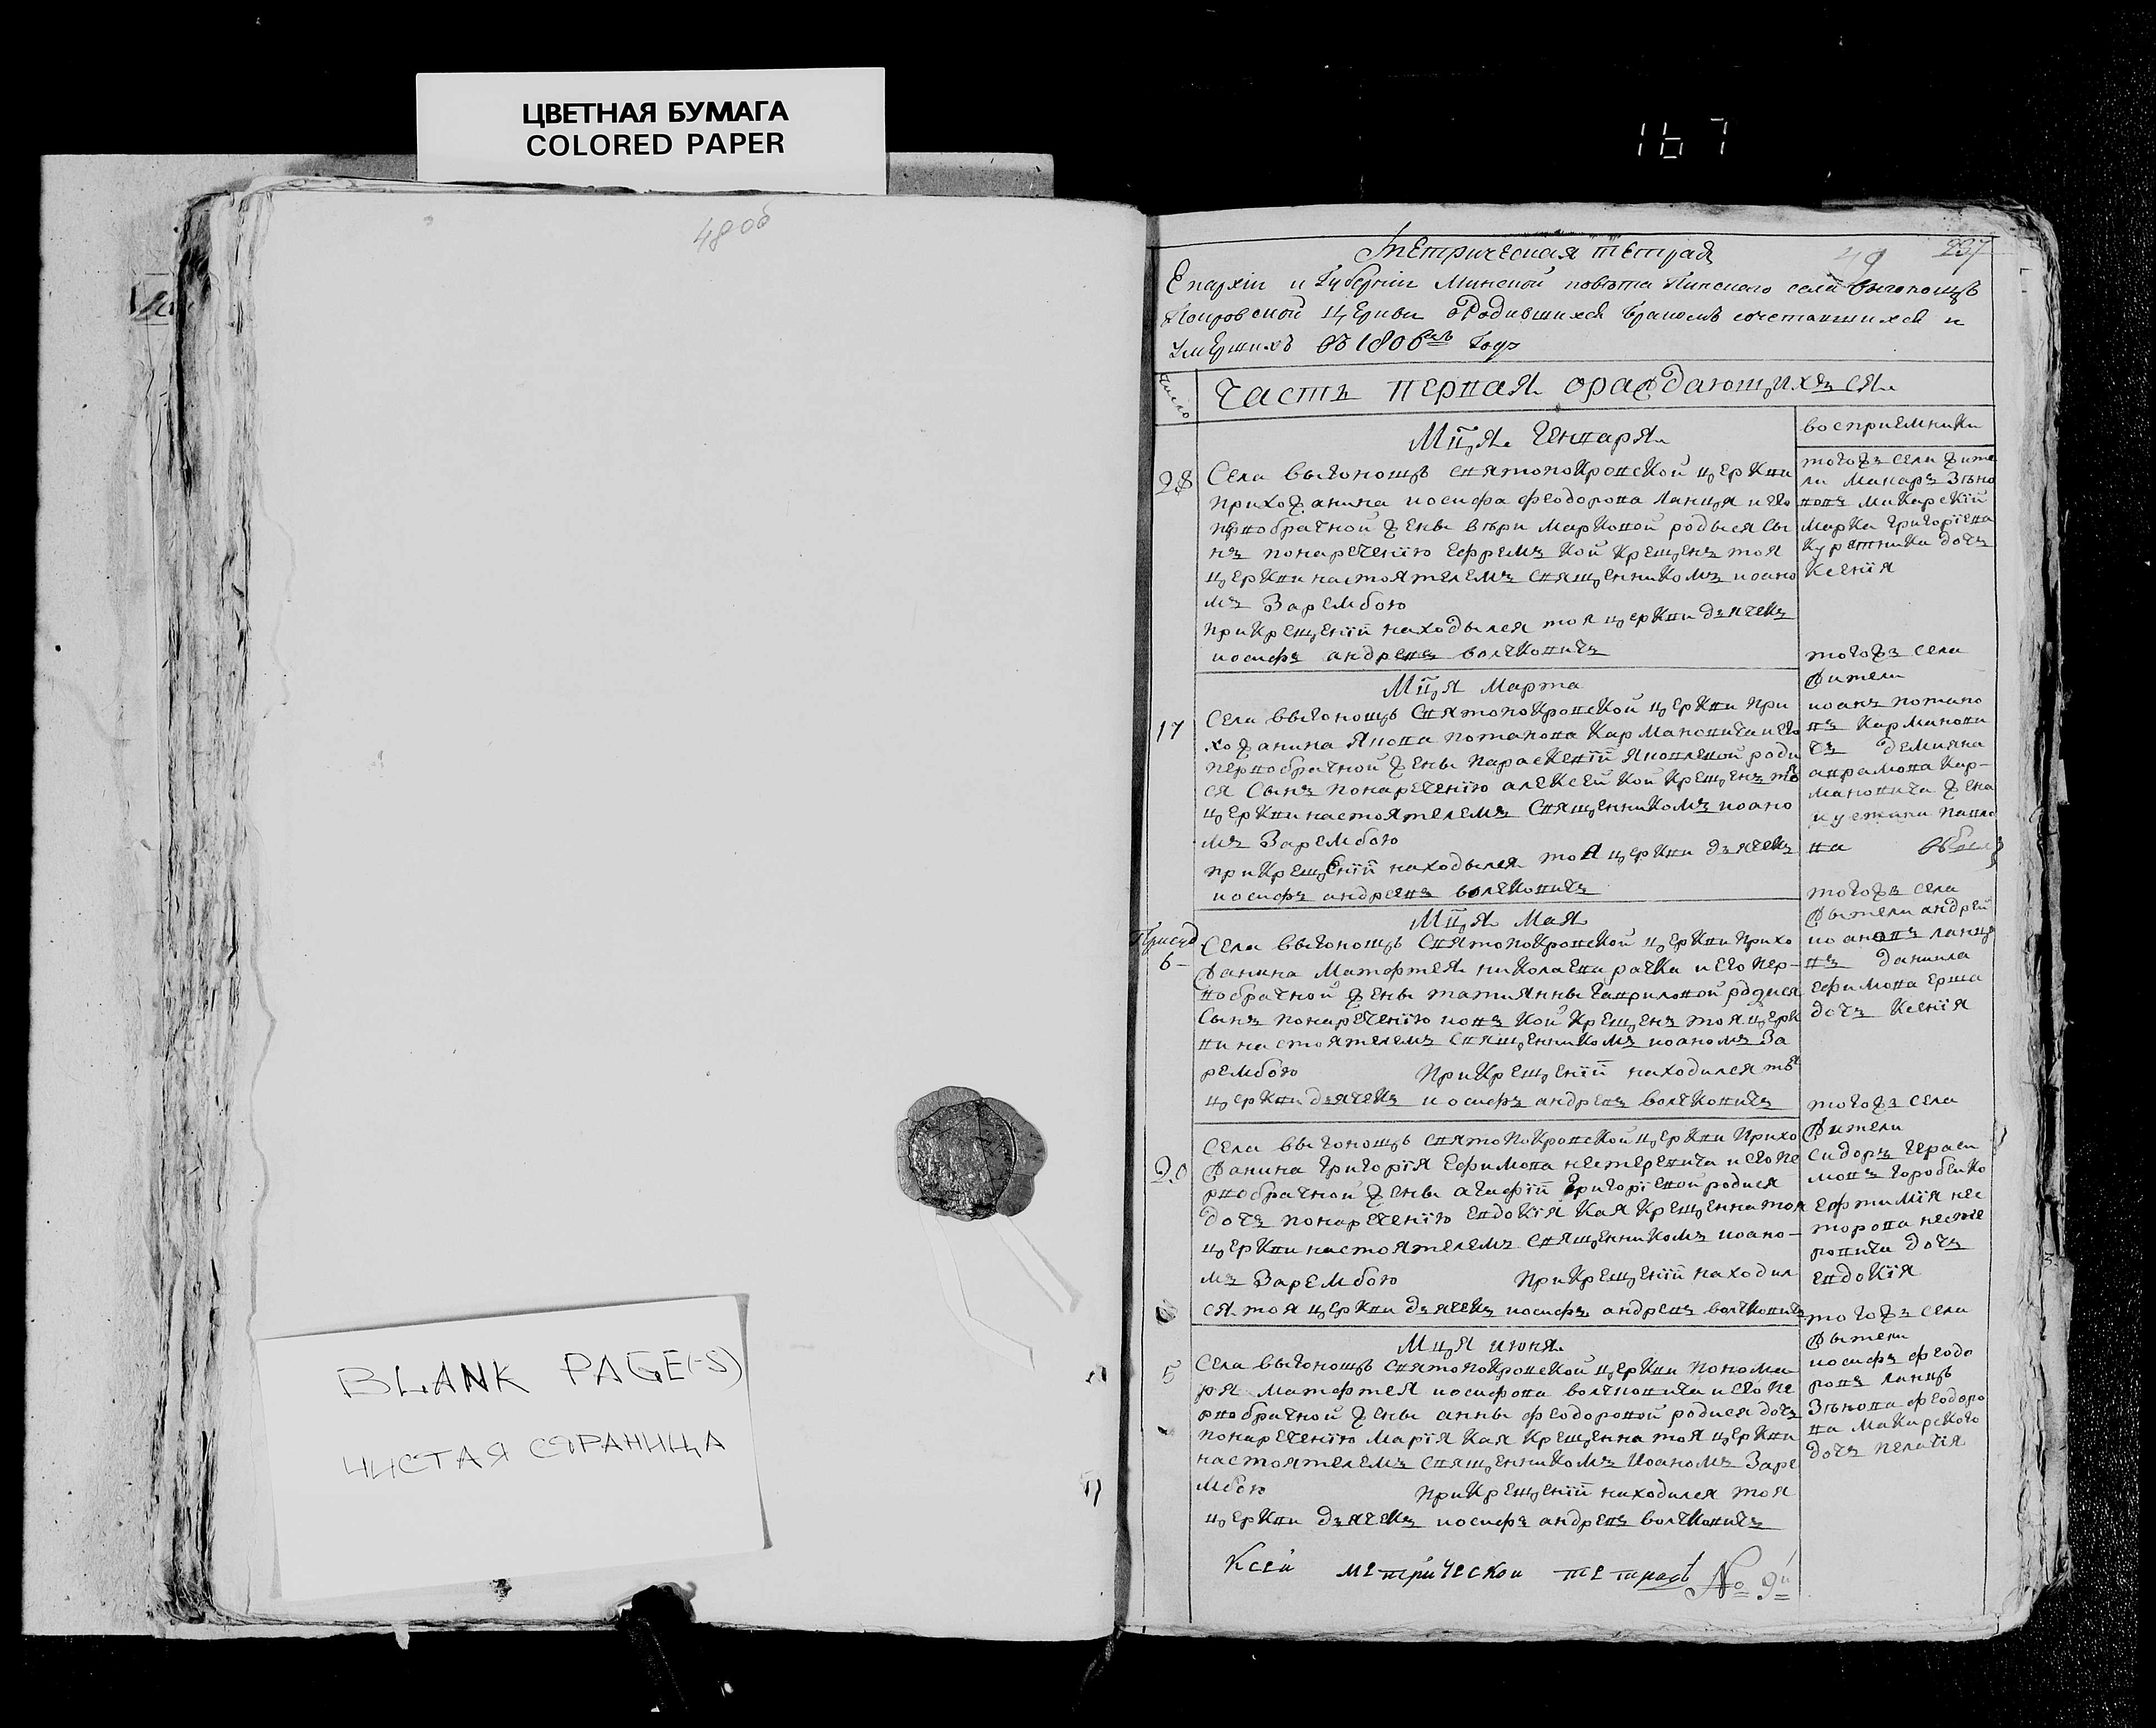 ЦВЕТНАЯ БУМАГА
COLORED PAPER
167
48 об
BLANK PAGE(-S)
ЧИСТАЯ СТРАНИЦА
49
237
Метрическая тетрадь
Епархіи и Губерніи Минской повѣта Пинского села Выгонощь
Покровской Церкви о Родившихся бракомъ сочетавшихся и
Умершихъ въ 1806мъ Году
Число
Часть первая ораждающихъся
восприемники
Мц̃а Генваря
28
Села выгонощъ святопокровской церкви
прихожанина иосифа феодорова Ланця и его
первобрачной жены вѣри Марковой родыся сы
нъ понаречению Ефремъ кой крещенъ тоя
церкви настоятелемъ священникомъ иоано
мъ Зарембою
прикрещеніи находылся тоя церкви дьячекъ
иосифъ андреевъ волчковичъ
тогожъ села жите
ли Макаръ Зѣно
вовъ Макарскій
Марка григоріева
дочъ
Ксенія
Мц̃я Марта
17
Села выгонощъ святопокровской церкви при
хожанина Якова потапова Кармановича и его
первобрачной жены параскевіи Яковлевой роди
ся сынъ понаречению алексей кой крещенъ тоя
церкви настоятелемъ священникомъ иоано
мъ Зарембою
прикрещеніи находылся тоя церкви дьячекъ
иосифъ андреевъ волчковичъ
тогожъ села
жители
иоанъ потапо
въ Карманови
чъ демияна
аврамова Кар-
мановича жена
павло
ва
Мц̃я Мая
6-
Села выгонощъ святопокровской церкви прихо
жанина Матфтея николаева рачка и его пер-
вобрачной жены татиянны гавриловой родися
сынъ понаречению иовъ кой крещенъ тоя церк
ви настоятелемъ священникомъ иоаномъ За
рембою прикрещеніи находился тоя
церкви дьячекъ иосифъ андреевъ волчковичъ
тогожъ села
жытели андрей
иоановъ ланце
въ данила
ефимова ерша
дочъ Ксенія
20
Села выгонощъ святопокровской церкви прихо
жанина григорія Ефимова нестеревича и его пе
рвобрачной жены агафіи григоріевой родися
дочъ понаречению Евдокія кая крещенна тоя
церкви настоятелемъ священникомъ иоано-
мъ Зарембою прикрещеніи находил
ся тоя церкви дьячекъ иосифъ андреевъ волчковичъ
тогожъ села
жители
сидоръ гераси
мовъ горобейко
ефтимія нес
торова несте
ровича дочъ
евдокія
Мц̃я июня
5
Села выгонощъ святопокровской церкви понома
ря Матфтея иосифова волчковича и его пе
рвобрачной жены анны феодоровой родися дочъ
понаречению Марія кая крещенна тоя церкви
настоятелемъ священникомъ иоаномъ Заре
мбою прикрещеніи находился тоя
церкви дьячекъ иосифъ андреевъ волчковичъ
тогожъ села
жытели
иосифъ феодо
ровъ ланцъ
Зѣнова феодоро
ва Макарского
дочъ пелагія
Ксей метрической тетрадѣ № 9й